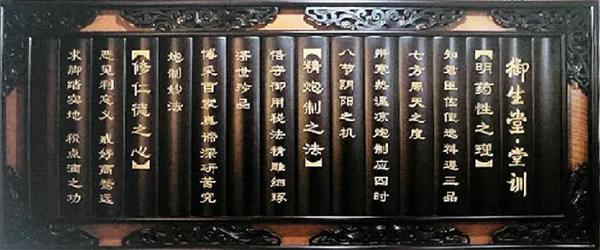 御生堂·堂训
【明药性之理】
知君臣佐使选料遵三品
七方周天之度
辨寒热温凉炮制应四时
八节阴阳之机
【精炮制之法】
恪守御用秘法精雕细琢
济世珍品
博采百家真谛深研苦究
炮制妙法
【修仁德之心】
忌见利忘义 戒好高骛远
求脚踏实地 积点滴之功